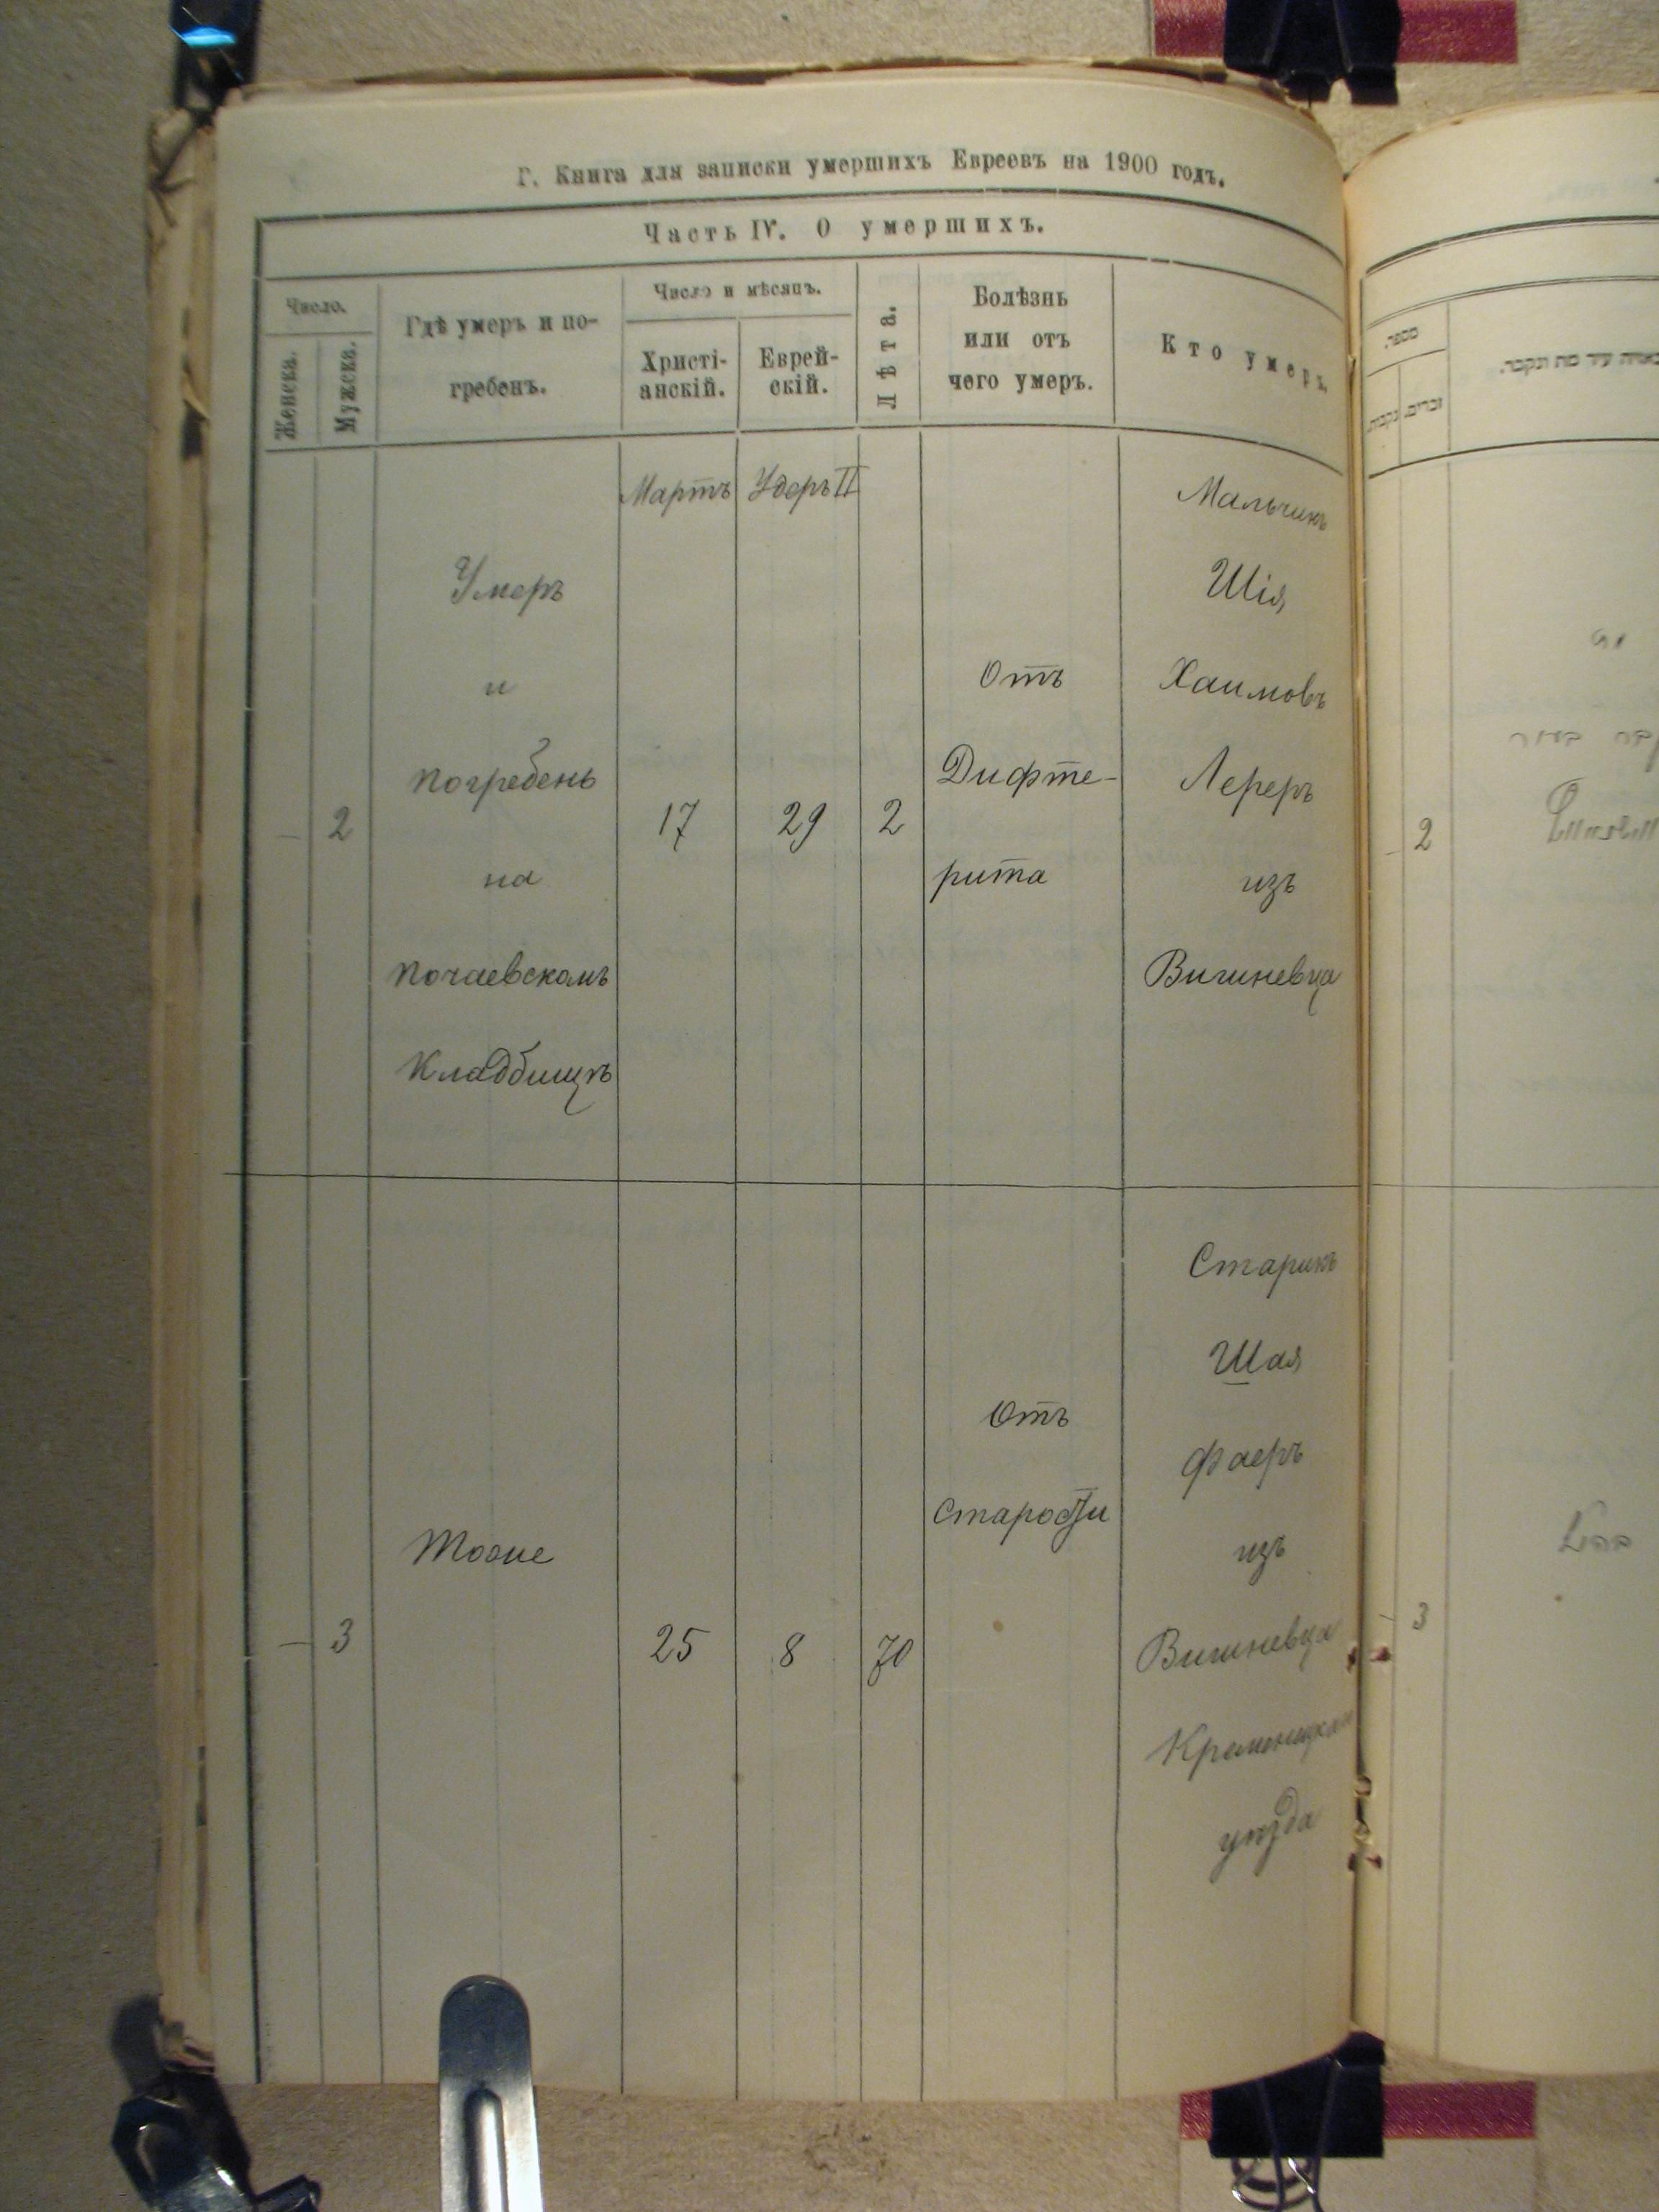 Г. Книга для записки умершихъ Евреевъ на 1900 годъ.
Часть IV. О умершихъ.
Число.
Женска.
Мужска.
Гдѣ умеръ и по-
гребенъ.
Число и мѣсяцъ.
Христі-
анскій.
Еврей-
скій.
Лѣта.
Болѣзнь
или отъ
чего умеръ.
Кто умеръ.
Мартъ
Адеръ II
Умеръ
и
погребень
на
почаевскомъ
кладбищѣ
– 2
17
29
2
Отъ
Дифте-
рита
Мальчикъ
Шія
Хаимовъ
Лереръ
изъ
Вишневца
– 3
Тоже
25
8
70
Отъ
Старости
Старикъ
Шая
Фаеръ
изъ
Вишневца
Кременецкаго
уѣзда
מספר.
זכרים.
נקבות.
2
3